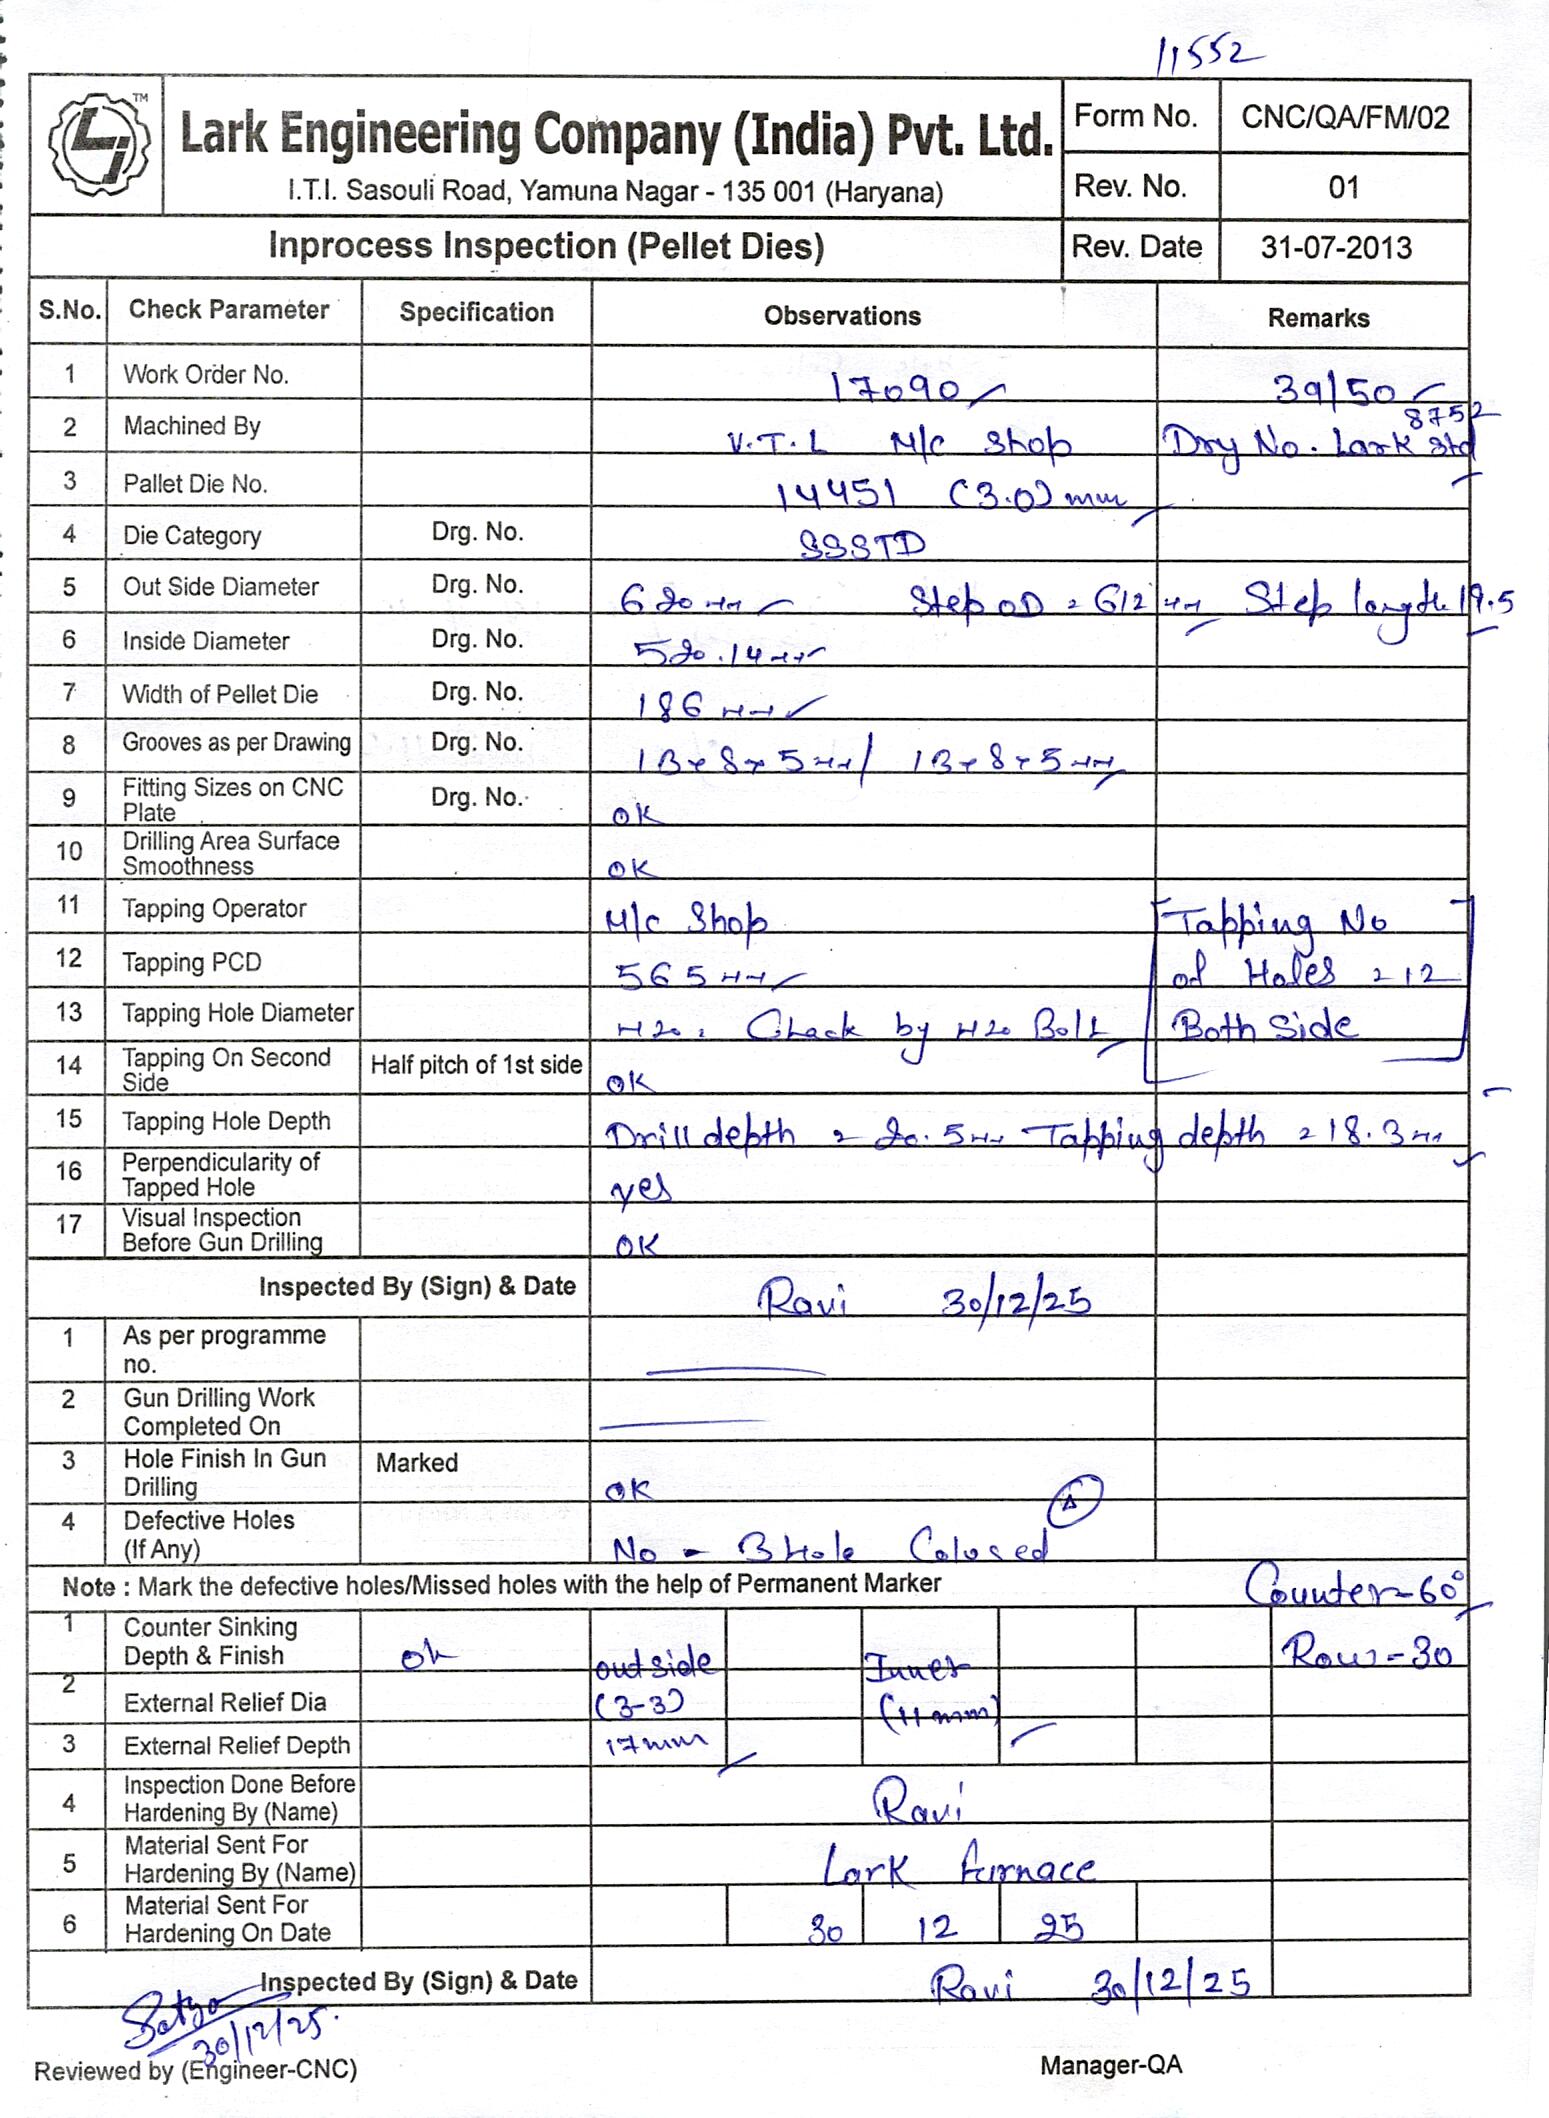 11552
TM
Lark Engineering Company (India) Pvt. Ltd.
I.T.I. Sasouli Road, Yamuna Nagar - 135 001 (Haryana)
Form No. CNC/QA/FM/02
Rev. No. 01
Inprocess Inspection (Pellet Dies) Rev. Date 31-07-2013
S.No. Check Parameter Specification Observations Remarks
1 Work Order No. 17090 39/50
8752
2 Machined By V.T.L M/c Shop Drg No. Lark Std
3 Pallet Die No. 14451 (3.0) mm
4 Die Category Drg. No. SSSTD
5 Out Side Diameter Drg. No. 620 mm Step OD = 612 mm Step length 19.5
6 Inside Diameter Drg. No. 520.14 mm
7 Width of Pellet Die Drg. No. 186 mm
8 Grooves as per Drawing Drg. No. 13x8x5mm/ 13x8x5mm
9 Fitting Sizes on CNC Plate Drg. No. OK
10 Drilling Area Surface Smoothness OK
11 Tapping Operator M/c Shop Tapping No
12 Tapping PCD 565 mm of Holes = 12
13 Tapping Hole Diameter M20. Chack by M20 Bolt Both Side
14 Tapping On Second Side Half pitch of 1st side OK
15 Tapping Hole Depth Drill depth = 20.5mm Tapping depth = 18.3mm
16 Perpendicularity of Tapped Hole yes
17 Visual Inspection Before Gun Drilling OK
Inspected By (Sign) & Date Ravi 30/12/25
1 As per programme no.
2 Gun Drilling Work Completed On
3 Hole Finish In Gun Drilling Marked OK
4 Defective Holes (If Any) No - 3 Hole Colosed
Note : Mark the defective holes/Missed holes with the help of Permanent Marker Counter-60°
1 Counter Sinking Depth & Finish ok outside Inner Row-30
2 External Relief Dia (3-3) (11mm)
3 External Relief Depth 17mm
4 Inspection Done Before Hardening By (Name) Ravi
5 Material Sent For Hardening By (Name) Lark furnace
6 Material Sent For Hardening On Date 30 12 25
Inspected By (Sign) & Date Ravi 30/12/25
Satya
30/12/25.
Reviewed by (Engineer-CNC) Manager-QA